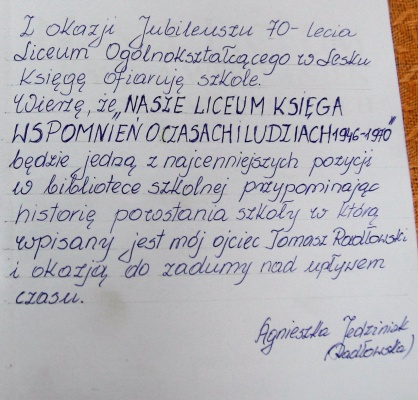 Z okazji Jubileuszu 70-lecia
Liceum Ogólnokształcącego w Lesku
Księgę ofiaruję szkole.
Wierzę, że „NASZE LICEUM KSIĘGA
WSPOMNIEŃ O CZASACH I LUDZIACH 1946-1970"
będzie jedzą z najcenniejszych pozycji
w bibliotece szkolnej przypominając
historię powstania szkoły w którą
wpisany jest mój ojciec Tomasz Radłowski
i okazją do zadumy nad upływem
czasu.
Agnieszka Jedziniak
(Radłowska)